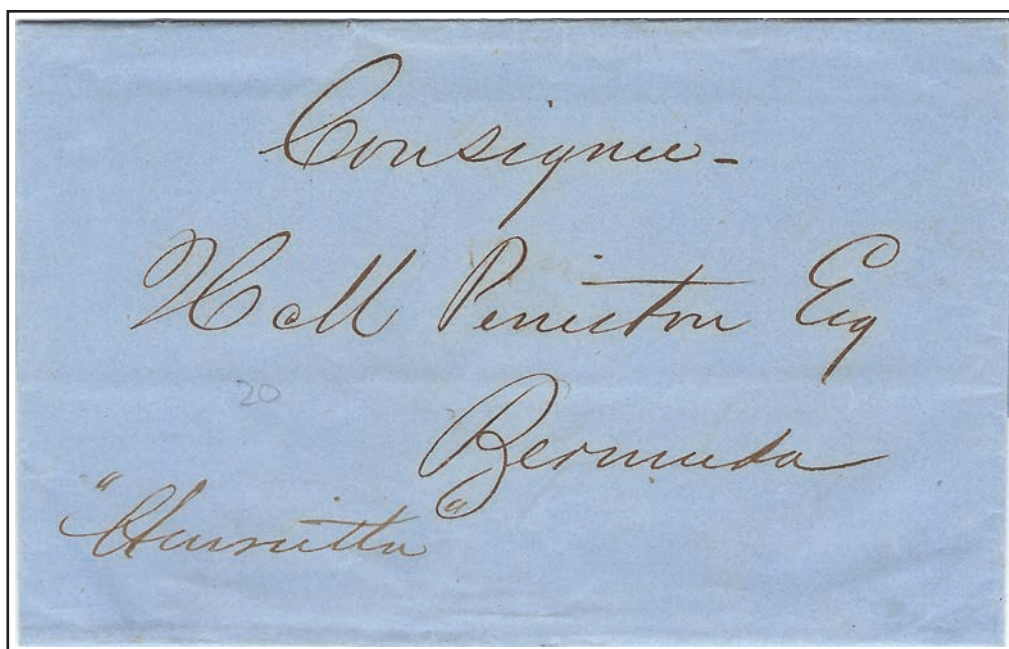 Consignee -
Peniston Esq
20
Bermuda
"Henrietta"